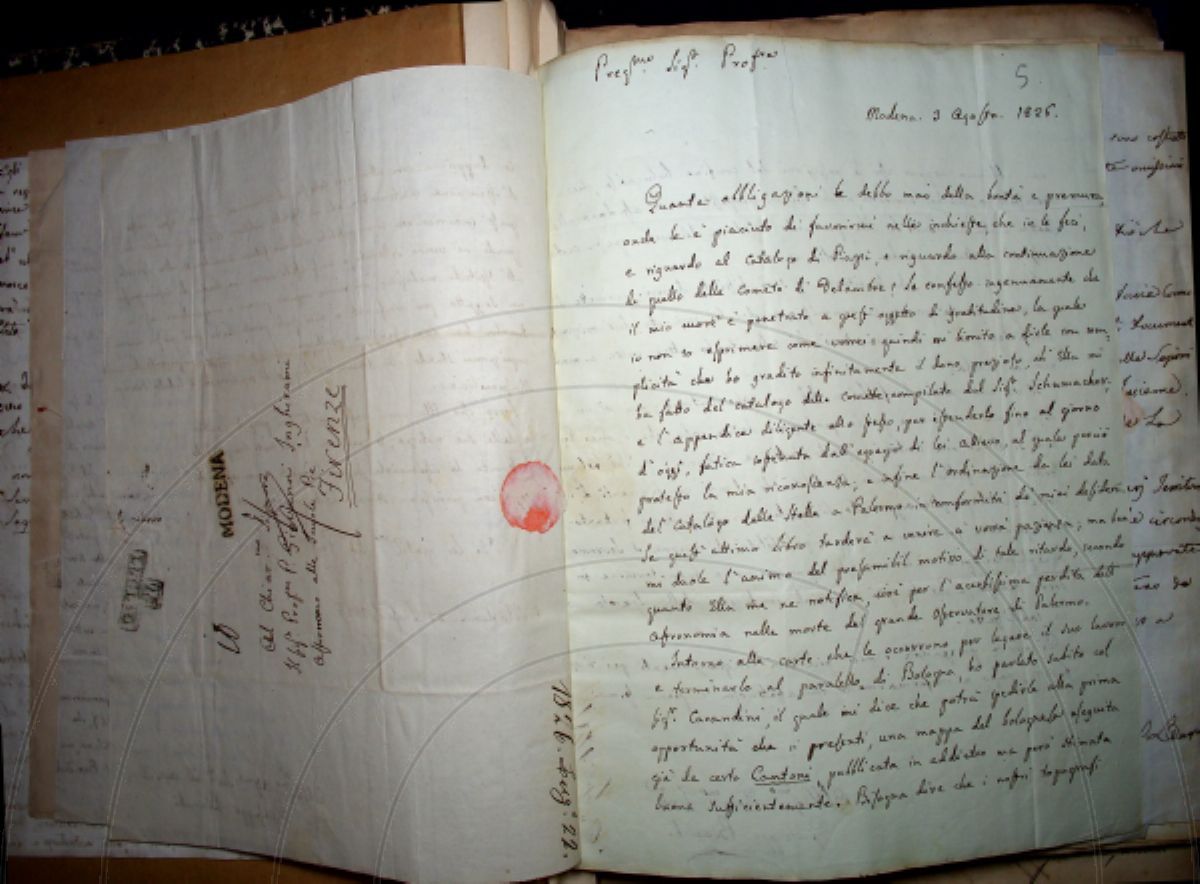 MODENA
Al Chiarmo Sigre
Il Sigr Profre P. Giovanni Inghirami
Astronomo alle Scuole Pie
Firenze
1826. Agº 22.
Pregmo Sigr Profre
5.
Modena. 3 Agosto. 1826.
Quante obbligazioni le debbo mai della bontà e premura
onde le è piaciuto di favorirmi nelle inchieste, che io le feci,
e riguardo al Catalogo di Piazzi, e riguardo alla continuazione
di quello delle Comete di Delambre! Io confesso ingenuamente che
il mio cuore è penetrato a questi oggetti di gratitudine, la quale
io non so esprimere come vorrei: quindi mi limito a dirle con sem,
plicità che ho gradito infinitamente il dono prezioso, ch' Ella mi
ha fatto del catalogo delle comete compilato dal Sigr Schumacher,
e l'appendice diligente allo stesso, per estenderlo fino al giorno
d'oggi, fatica sostenuta dall' egregio di lei allievo, al quale pure
protesto la mia riconoscenza; e infine l'ordinazione da lei data
del Catalogo delle Stelle a Palermo in conformità de' miei desiderj
Se quest' ultimo libro tarderà a venire ci vorrà pazienza; ma bene
mi duole l'animo del presumibil motivo di tale ritardo, secondo
quanto Ella me ne notifica, cioè per l'acerbissima perdita dell'
Astronomia nella morte del grande Osservatore di Palermo.
Intorno alle carte che le occorrono, per legare il suo lavoro
e terminarlo al paralello di Bologna, ho parlato subito col
Sigr Carandini, il quale mi dice che potrà spedirle alla prima
opportunità che si presenti, una mappa del bolognese eseguita
già da certo Cantoni, pubblicata in addietro ma però stimata
buona sufficientemente. Bisogna dire che i nostri topografi